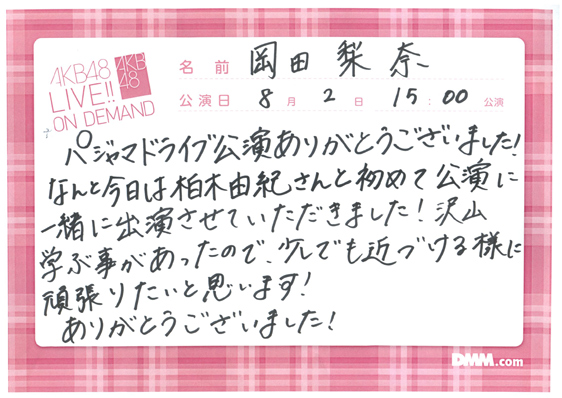 AKB48
LIVE!!
ON DEMAND
AKB
48
名前 岡田梨奈
公演日 8月2日 15:00公演
パジャマドライブ公演ありがとうございました!
なんと今日は柏木由紀さんと初めて公演に
一緒に出演させていただきました!沢山
学ぶ事があったので、少しでも近づける様に
頑張りたいと思います!
ありがとうございました!
DMM.com